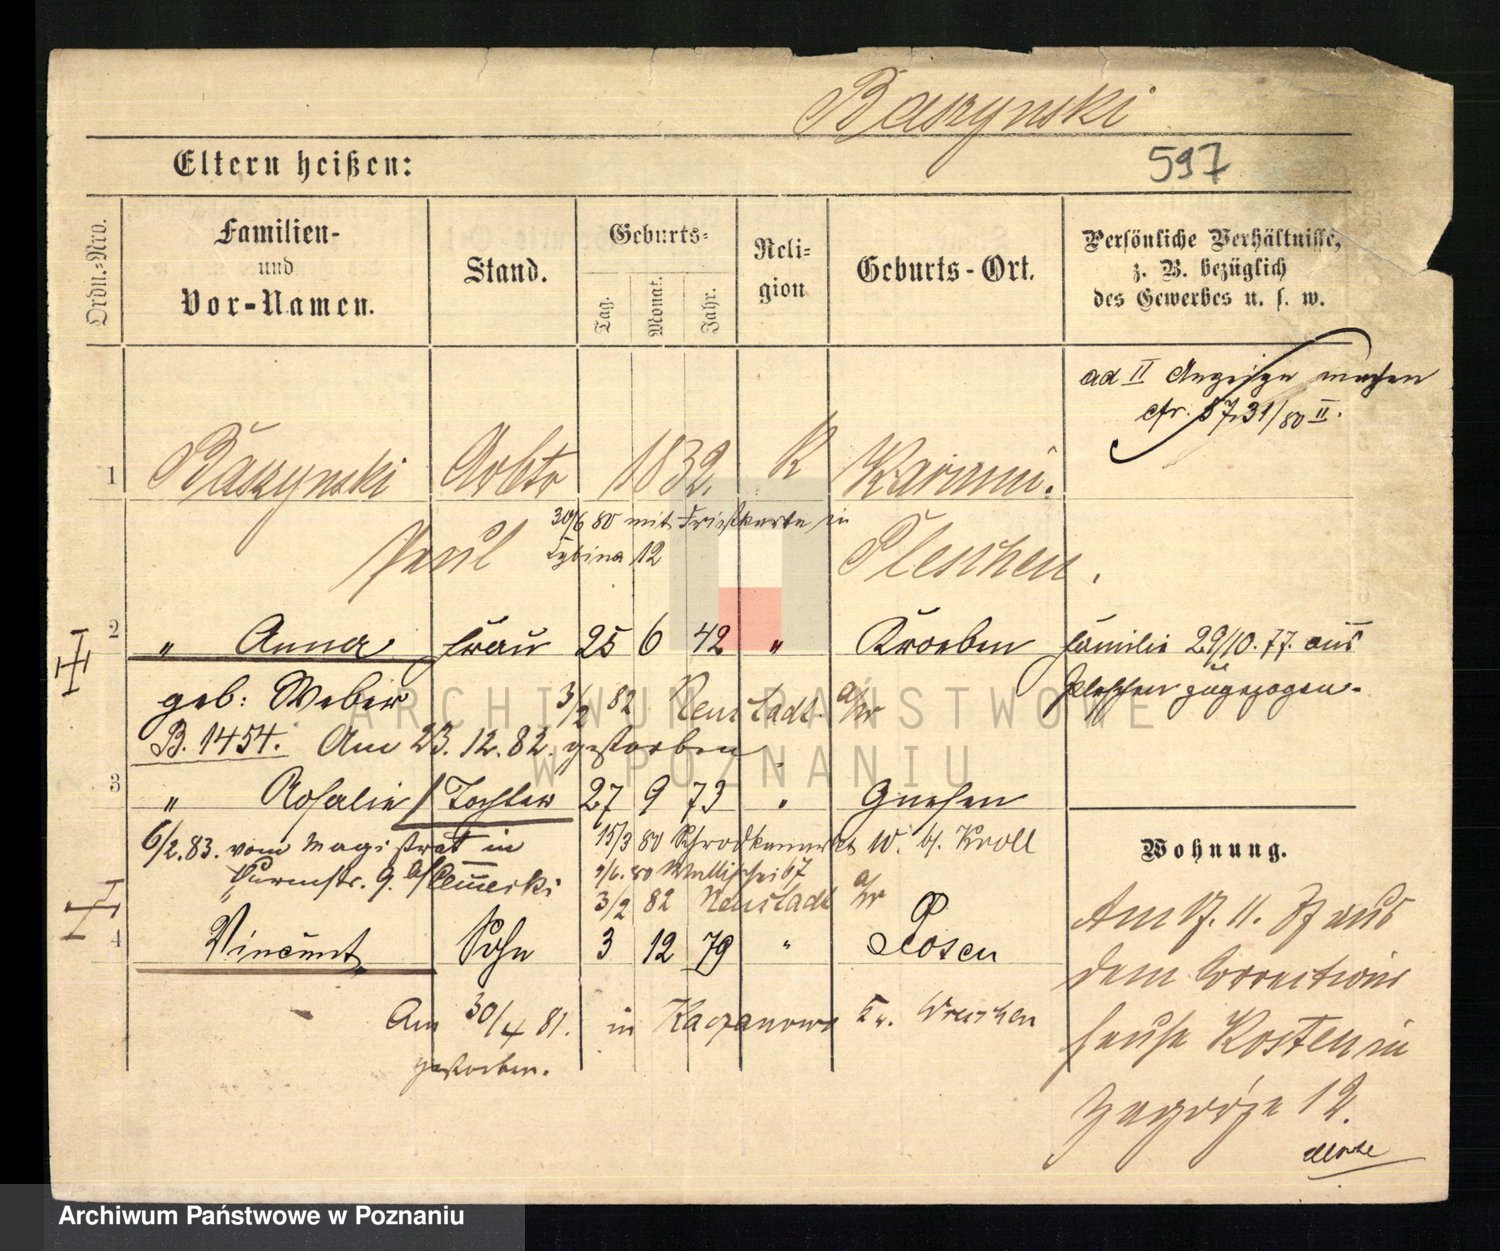 Baszynski
597
Eltern heißen:
Ordn.-Nro.
Familien-
und
Vor-Namen.
Stand.
Geburts-
Tag.
Monat.
Jahr.
Reli-
gion
Geburts-Ort.
Persönliche Verhältnisse,
z. B. bezüglich
des Gewerbes u. s. w.
ad II Anzeige machen
cfr. 5731/80 II.
1 Baszynski Arbtr 1832. K Karmin.
30/6 80 mit Fristkarte in
Paul Cybina 12 Pleschen.
2 " Anna Frau 25 6 42 " Kroeben
Familie 29/10. 77. aus
Pleschen zugezogen.
geb: Weber 3/2 82 Neustadt a/W
B. 1454. Am 23. 12. 82. gestorben
3 " Rosalie Tochter 27 9 73 " Gnesen
6/2. 83. vom Magistrat in 15/3 80 W. b. Kroll
9. 1/6. 80 Wallischei 67
3/2 82 Neustadt a/W
4 Vincent Sohn 3 12 79 " Posen
Am 30/4 81. in Kaczanowo Kr. Wreschen
gestorben.
Wohnung.
Am 17. 11. 77 aus
dem Corrections
hause Kosten in
Zagórze 12.
Archiwum Państwowe w Poznaniu
ARCHIWUM PAŃSTWOWE
W POZNANIU